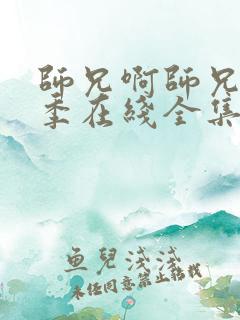 師兄啊師兄
季在綫全集
魚兒淺淺
未經同意禁止轉載